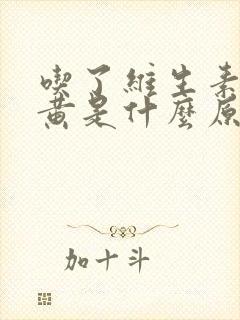 喫了維生素
黄是什麼原
加十斗